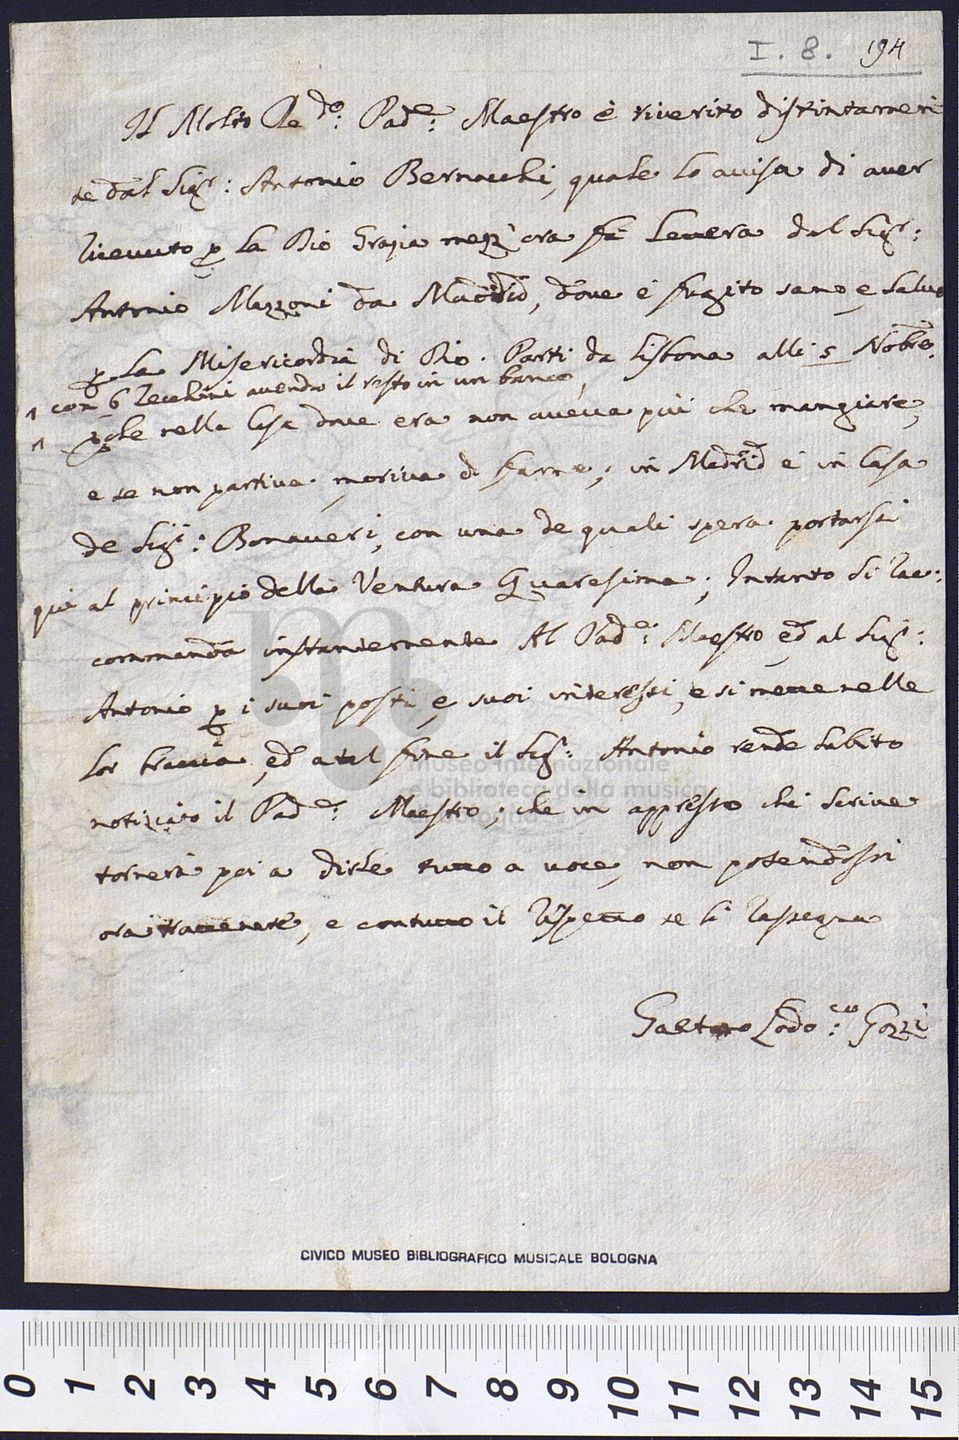 I. 8. 194
Il Molto Re.do: Pad.e: Maestro è riverito distintamen
te dal Sig.r: Antonio Bernacchi, quale lo avisa di aver
ricevuto p la Dio Grazia mezz'ora fà lettera dal Sig.r:
Antonio Mazzoni da Madrid, dove è fugito sano, e salvo
p la Misericordia di Dio. Partì da Lisbona alli 5 Nobre.
con 6 Zecchini avendo il resto in un banco,
pche nella Casa dove era non aveva più che mangiare,
e se non partiva, moriva di fame; in Madrid è in Casa
de Sig.i: Bonaveri, con una de quali spera portarsi
quì al principio della Ventura Quaresima; Intanto si rac=
commanda instantemente Al Pad.e: Maestro, ed al Sig.r:
Antonio p i suoi posti, e suoi interessi, e si mette nelle
lor braccia, ed a tal fine il Sig.r: Antonio rende subito
notiziato il Pad.e: Maestro; che in appresso chi scrive
tornerà poi a dirle tutto a voce, non potendosi
ora trattenere, e con tutto il rispetto se li rassegna
Gaetano Lodo:co Gozzi
museo internazionale
e biblioteca della musica
CIVICO MUSEO BIBLIOGRAFICO MUSICALE BOLOGNA
0 1 2 3 4 5 6 7 8 9 10 11 12 13 14 15